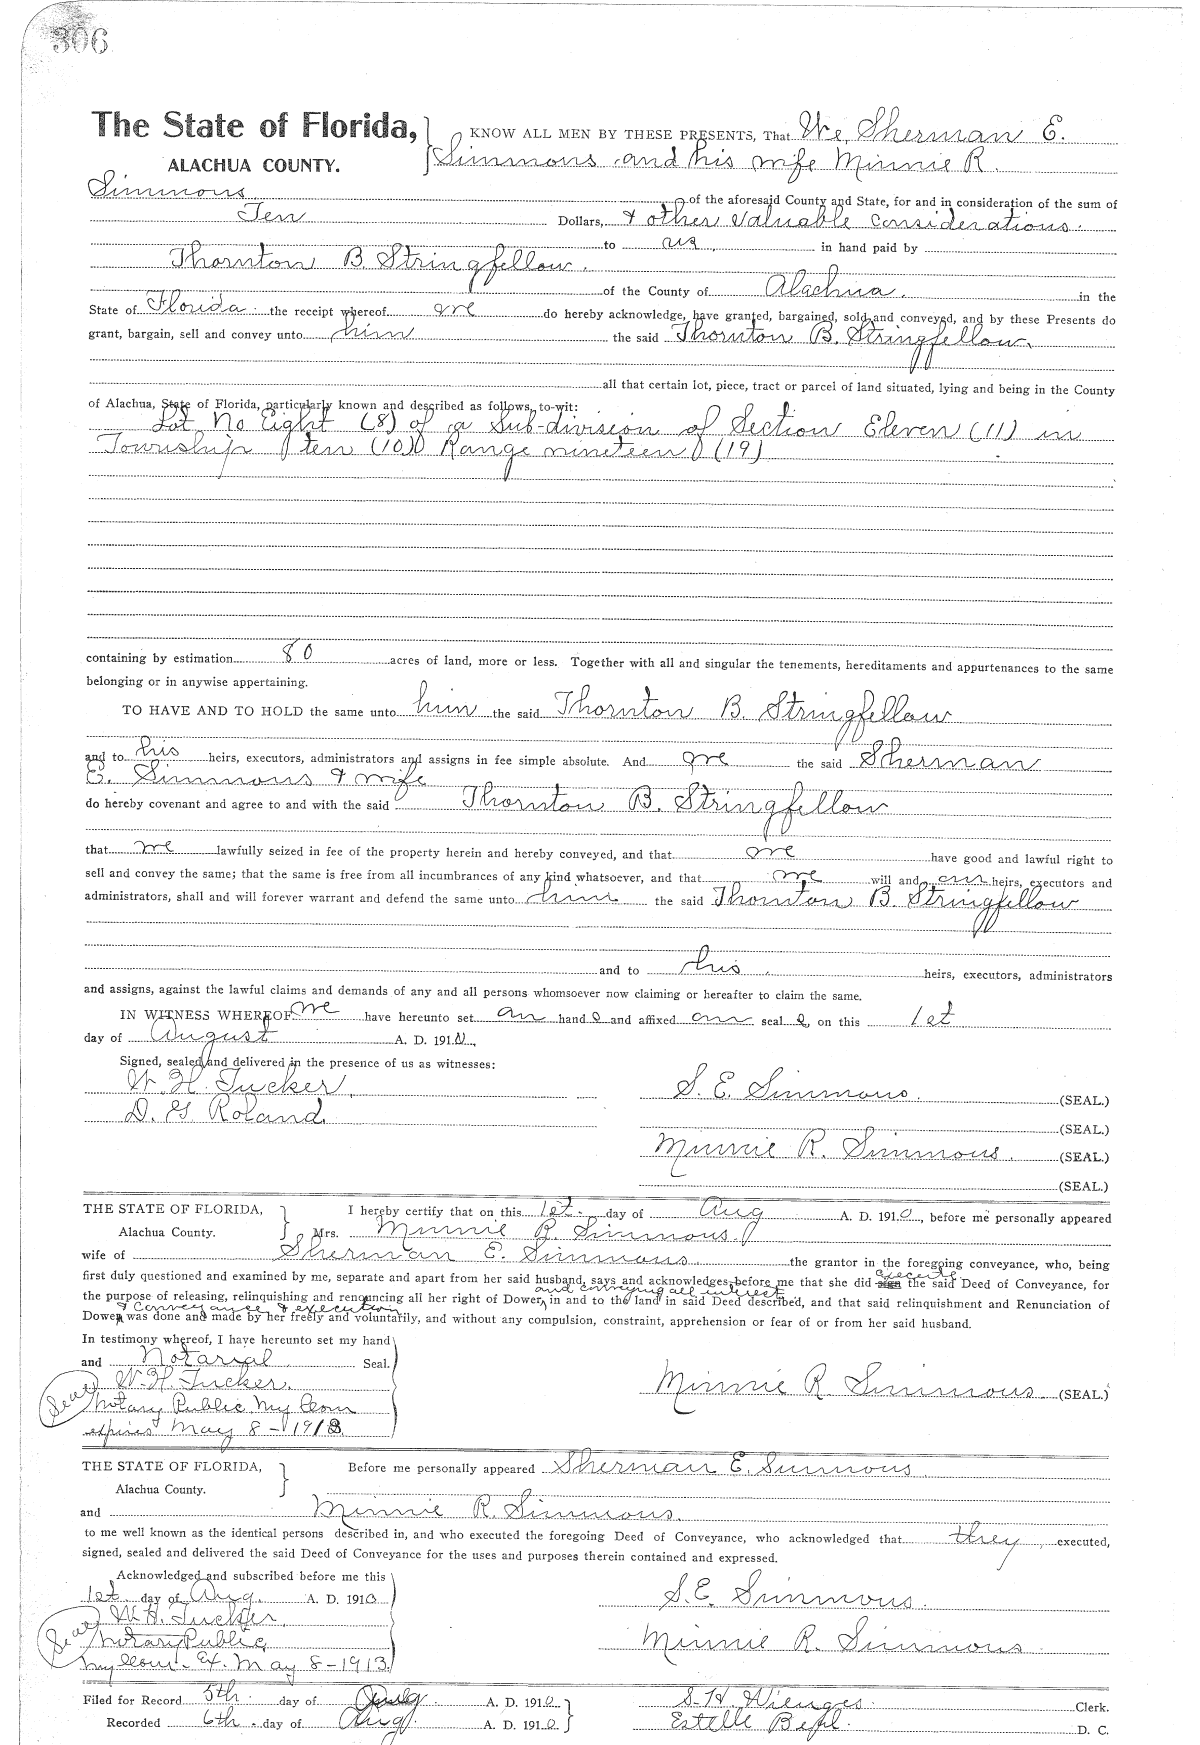 306
The State of Florida, KNOW ALL MEN BY THESE PRESENTS, That We, Sherman E.
ALACHUA COUNTY. Simmons and his wife Minnie R.
Simmons of the aforesaid County and State, for and in consideration of the sum of
Ten Dollars, & other valuable considerations.
to us in hand paid by
Thornton B. Stringfellow.
of the County of Alachua. in the
State of Florida the receipt whereof we do hereby acknowledge, have granted, bargained, sold and conveyed, and by these Presents do
grant, bargain, sell and convey unto him the said Thornton B. Stringfellow.
all that certain lot, piece, tract or parcel of land situated, lying and being in the County
of Alachua, State of Florida, particularly known and described as follows, to-wit:
Lot No Eight (8) of a Sub-division of Section Eleven (11) in
Township ten (10) Range nineteen (19)
containing by estimation 80 acres of land, more or less. Together with all and singular the tenements, hereditaments and appurtenances to the same
belonging or in anywise appertaining.
TO HAVE AND TO HOLD the same unto him the said Thornton B. Stringfellow
and to his heirs, executors, administrators and assigns in fee simple absolute. And we the said Sherman
E. Simmons & wife
do hereby covenant and agree to and with the said Thornton B. Stringfellow
that we lawfully seized in fee of the property herein and hereby conveyed, and that we have good and lawful right to
sell and convey the same; that the same is free from all incumbrances of any kind whatsoever, and that we will and our heirs, executors and
administrators, shall and will forever warrant and defend the same unto him the said Thornton B. Stringfellow
and to his heirs, executors, administrators
and assigns, against the lawful claims and demands of any and all persons whomsoever now claiming or hereafter to claim the same.
IN WITNESS WHEREOF we have hereunto set our hands and affixed our seals, on this 1st
day of August A. D. 1910,
Signed, sealed and delivered in the presence of us as witnesses:
W. H. Tucker. S. E. Simmons. (SEAL.)
D. G. Roland. (SEAL.)
Minnie R. Simmons. (SEAL.)
(SEAL.)
THE STATE OF FLORIDA, I hereby certify that on this 1st. day of Aug A. D. 1910, before me personally appeared
Alachua County. Mrs. Minnie R. Simmons.
wife of Sherman E. Simmons the grantor in the foregoing conveyance, who, being
first duly questioned and examined by me, separate and apart from her said husband, says and acknowledges before me that she did sign execute the said Deed of Conveyance, for
the purpose of releasing, relinquishing and renouncing all her right of Dower, and conveying all interest in and to the land in said Deed described, and that said relinquishment and Renunciation of
Dower & conveyance & execution was done and made by her freely and voluntarily, and without any compulsion, constraint, apprehension or fear of or from her said husband.
In testimony whereof, I have hereunto set my hand
and Notarial Seal.
W. H. Tucker. Minnie R. Simmons (SEAL.)
Seal Notary Public, My Com
expires May 8-1913
THE STATE OF FLORIDA, Before me personally appeared Sherman E. Simmons
Alachua County.
and Minnie R. Simmons.
to me well known as the identical persons described in, and who executed the foregoing Deed of Conveyance, who acknowledged that they executed,
signed, sealed and delivered the said Deed of Conveyance for the uses and purposes therein contained and expressed.
Acknowledged and subscribed before me this
1st day of Aug. A. D. 1910 S. E. Simmons.
W. H. Tucker.
Seal Notary Public Minnie R. Simmons
My Com. Ex. May 8-1913.
Filed for Record 5th day of Aug A. D. 1910 S. H. Wienges. Clerk.
Recorded 6th. day of Aug A. D. 1910 Estelle D. C.